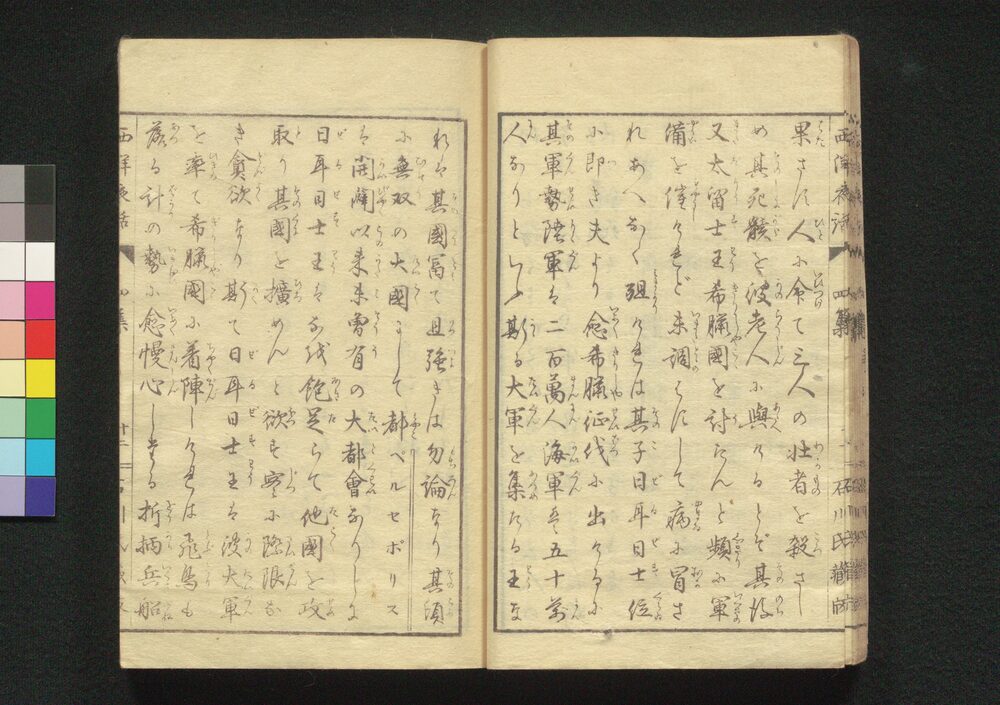 果さに人に命て三人の壮者を殺さし
め其死骸を彼老人に與けるとぞ其後
又太留士王希臘國を討たんと頻に軍
備を催けれど未調はにして病に冒さ
れあへなく殂けれは其子日耳日士位
に即き夫より愈希臘征伐に出けるに
其軍勢陸軍は二百萬人海軍は五十萬
人なりといふ斯る大軍を集たる王な
れは其國冨て且強きは勿論なり其頃
に無双の大國にして都ペルセポリス
は開闢以来未曽有の大都會なりしに
日耳日士王はなほ飽足らて他國を攻
取り其國を擴めんと欲す實に際限な
き貪欲なり斯て日耳日士王は彼大軍
を率て希臘國に着陣しけれは飛鳥も
落る計の勢に愈慢心しける折柄兵船
西洋夜話
四集
石川氏蔵版